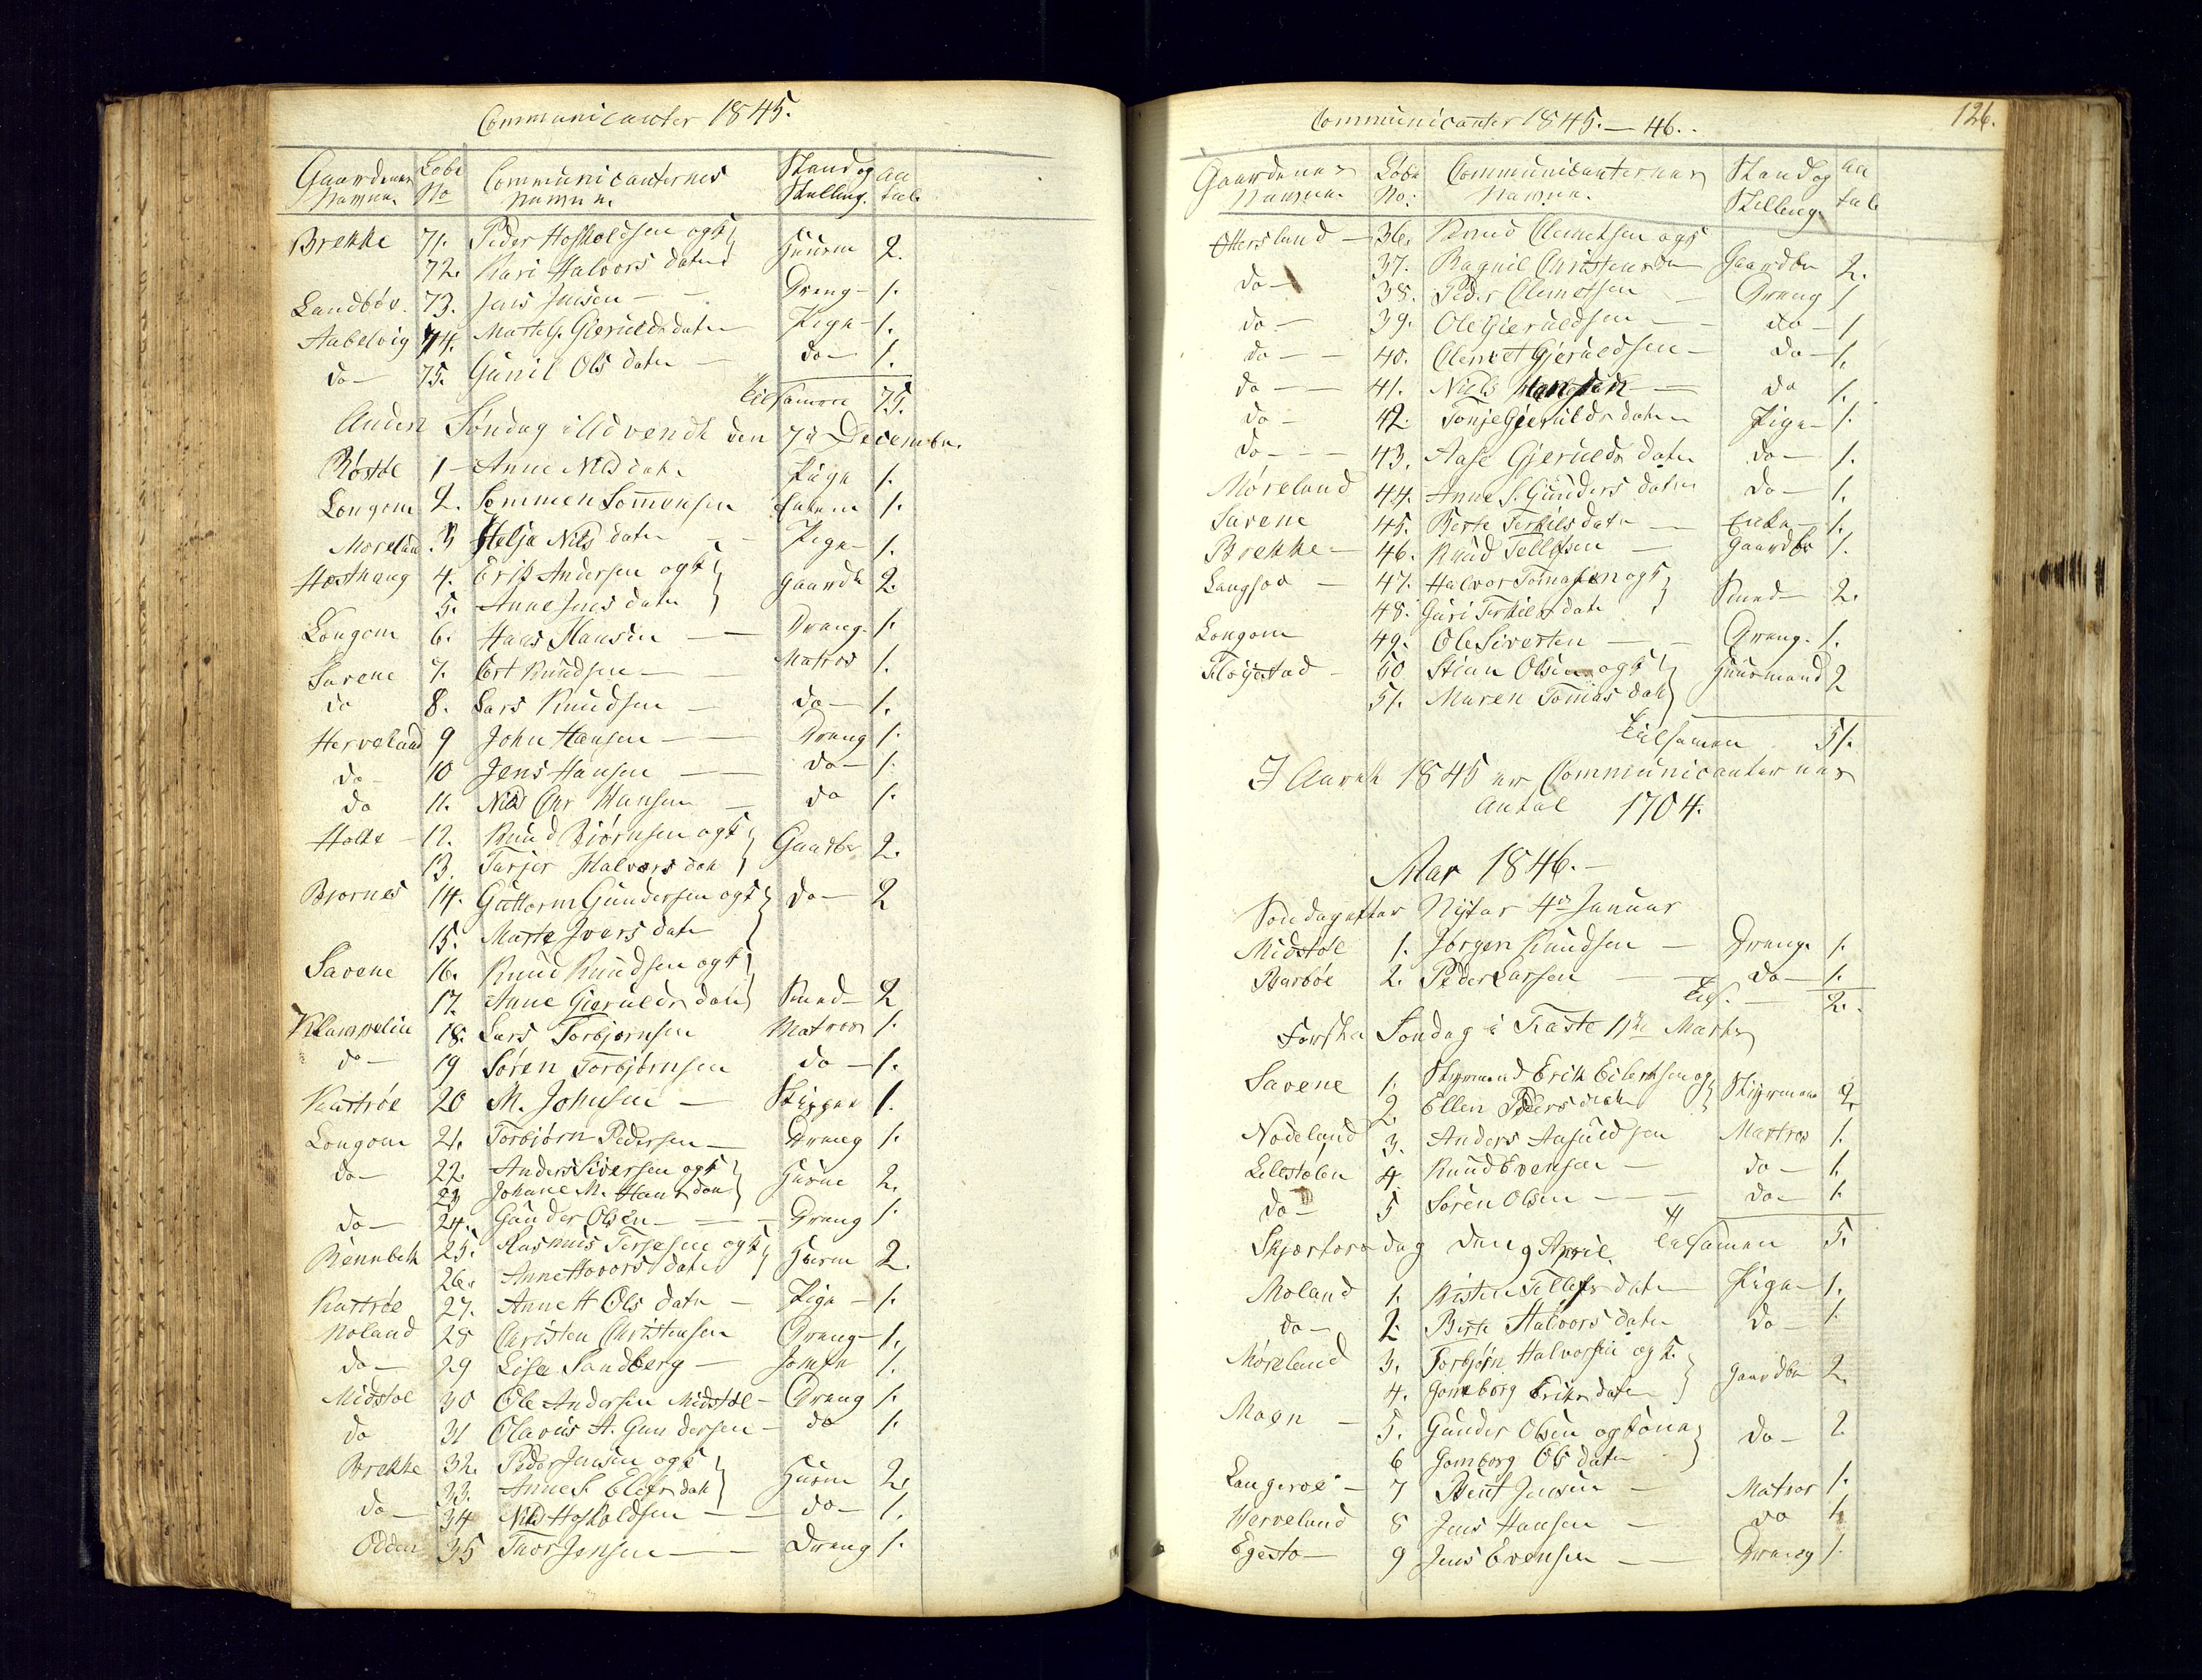 Communicanter 1845.
Gaardenes Løbe Communicanternes Stand og An
Navne. No Navne. Stilling. tal.
Brekke 71. Peder Hoskoldsen og K
72. Kari Halvors datter Huusm 2.
Landbøe. 73. Jens Jensen — — Dreng — 1.
Aabelvig 74. Marte Gjerulds datter Pige — 1.
do — 75. Gunil Ols datter — do — 1.
tilsamen 75.
Anden Søndag i Advendt den 7de December.
Røstøl 1 — Anne Nils datter Pige 1.
Longom 2. Sommen Sommensen 1.
Moreland 3 Helje Nils datter — — Pige — 1.
4. Erik Andersen og K Gaardb 2.
5. Anne Jens datter
Longom 6. Hans Hansen — — Dreng 1.
Savene 7. Cort Knudsen — Matros 1.
do 8. Lars Knudsen — do — 1.
Herveland 9 John Hansen — — Dreng 1.
do — 10 Jens Hansen — — do — 1.
do 11. Nils Chr Hansen — do 1.
Holte — 12. Knud Biørnsen og K Gaardbr 2.
13. Tarjer Halvors datt
Bjornes 14. Guttorm Gundersen og K do — 2
15. Marte Ivers datter
Savene 16. Knud Knudsen og K
17. Anne Gjerulds datt Smed — 2
18. Lars Torbjørnsen Matros 1.
do — 19 Søren Torbjørnsen do — 1.
20 M. Johnsen — Skipper 1.
Longom 21. Torbiørn Pedersen — Dreng 1.
do — 22. Anders Siversen og K Huusm 2.
23 Johane M. Hans datt
do — 24. Gunder Olsen — — — Dreng 1.
25. Rasmus Terjesen og K Huusm 2.
26. Anne Hovors datter
27. Anne H Ols datter — Pige — 1.
Roland 28 Christen Christensen Dreng — 1.
do — 29 Lise Sandberg — Jomfr 1.
Midstøl 30 Ole Andersen Midstøl — Dreng 1.
do 31 Olavus A. Gundersen — do 1.
Brekke 32. Peder Jensen og K Huusm 2.
33. Anne S. Elefs datt
do — 34 Nils Hoskoldsen — — do — 1.
Odden 35 Thor Jensen — — Dreng 1.
Communicanter 1845. — 46. . 126.
Gaardenes Løbe Communicanternes Stand og An
Navne. No: Navne. Stilling. tal
Ottersland — 36. Knud Clemetsen og K
37. Ragnil Christens dr Gaardbr 2.
do — 38. Peder Clemetsen — Dreng 1
do — 39. Ole Gieruldsen — — do — 1
do — — 40. Clemet Gjeruldsen — do — 1.
do — — 41. Niels Hansen — do 1.
do — 42. Tonje Gjerulds datter Pige — 1.
do — — — 43. Aase Gjerulds datter do — 1.
Møreland 44. Anne S. Gunders datter do — 1.
Savene 45. Berte Terkils datter — Enke — 1.
Brekke — 46. Knud Tellefsen — Gaardbr 1.
Langsøe — 47. Halvor Tomassen og K Smed — 2.
48. Guri Terkils datt
Longom 49. Ole Siversen — — Dreng. 1.
Fløystad — 50 Stian Olsen og K Huusmand 2
51. Maren Tomas datt
tilsamen 51.
I Aaret 1845 er Communicanternes
Antal 1704.
Aar 1846. —
Søndag efter Nytar 4de Januar
Midstøl 1. Jørgen Knudsen — Dreng 1.
Barbøe 2. Peder Larsen — — do — 1.
tils. — 2.
Første Søndag i Faste 1ste Marts
Savene 1. Styrmand Erik Eilertsen og Styrmann 2
2 Ellen Peders datt
Nodeland 3. Anders Aasuldsen Martros 1.
Lillestølen 4 Knud Evensen — do — 1.
do — 5 Søren Olsen — — — do — 1.
Skjærtorsdag den 9 April tilsamen 5.
Moland 1. Kisten Tellefs datter Pige — 1.
do — 2. Berte Halvors datter do — 1.
Møreland 3. Torbjørn Halvorsen og K. Gaardbr 2.
4. Gomeborg Eriks datter
Moen — 5. Gunder Olsen og Kone do — 2
6 Gomborg Ols datter
Langerøe — 7 Bent Jensen — Matros 1.
Herveland 8 Jens Hansen — do 1.
9 Jens Evensen — — Dreng 1.